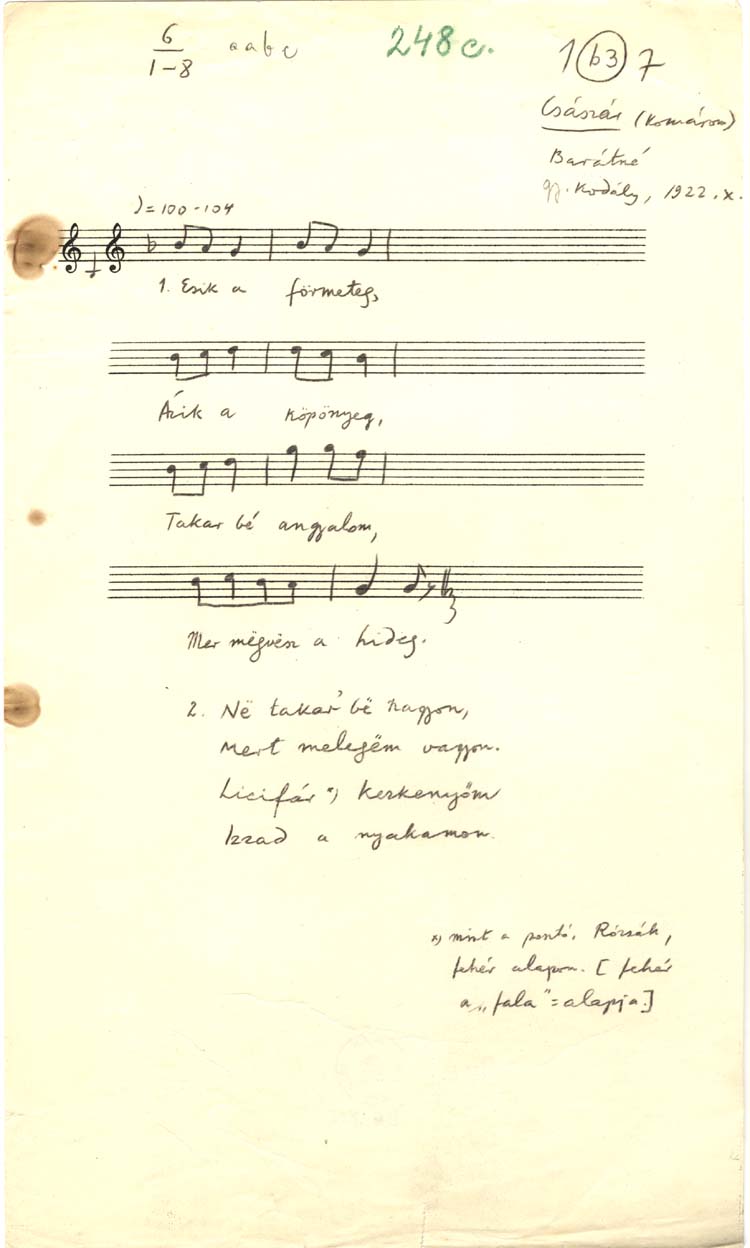 6 aabc 248c. 1 b3 7
1-8
Császár (Komárom)
Barátné
gy. Kodály, 1922. X.
♪=100-104
1. Esik a förmeteg,
Ázik a köpönyeg,
Takar bé angyalom,
Mer mëgvësz a hideg.
2. Në takar' bë nagyon,
Mert melegëm vagyon.
Licifár *) keszkenyőm
Izzad a nyakamon.
*) mint a Rózsák,
fehér alapon. [fehér
a „fala"=alapja.]